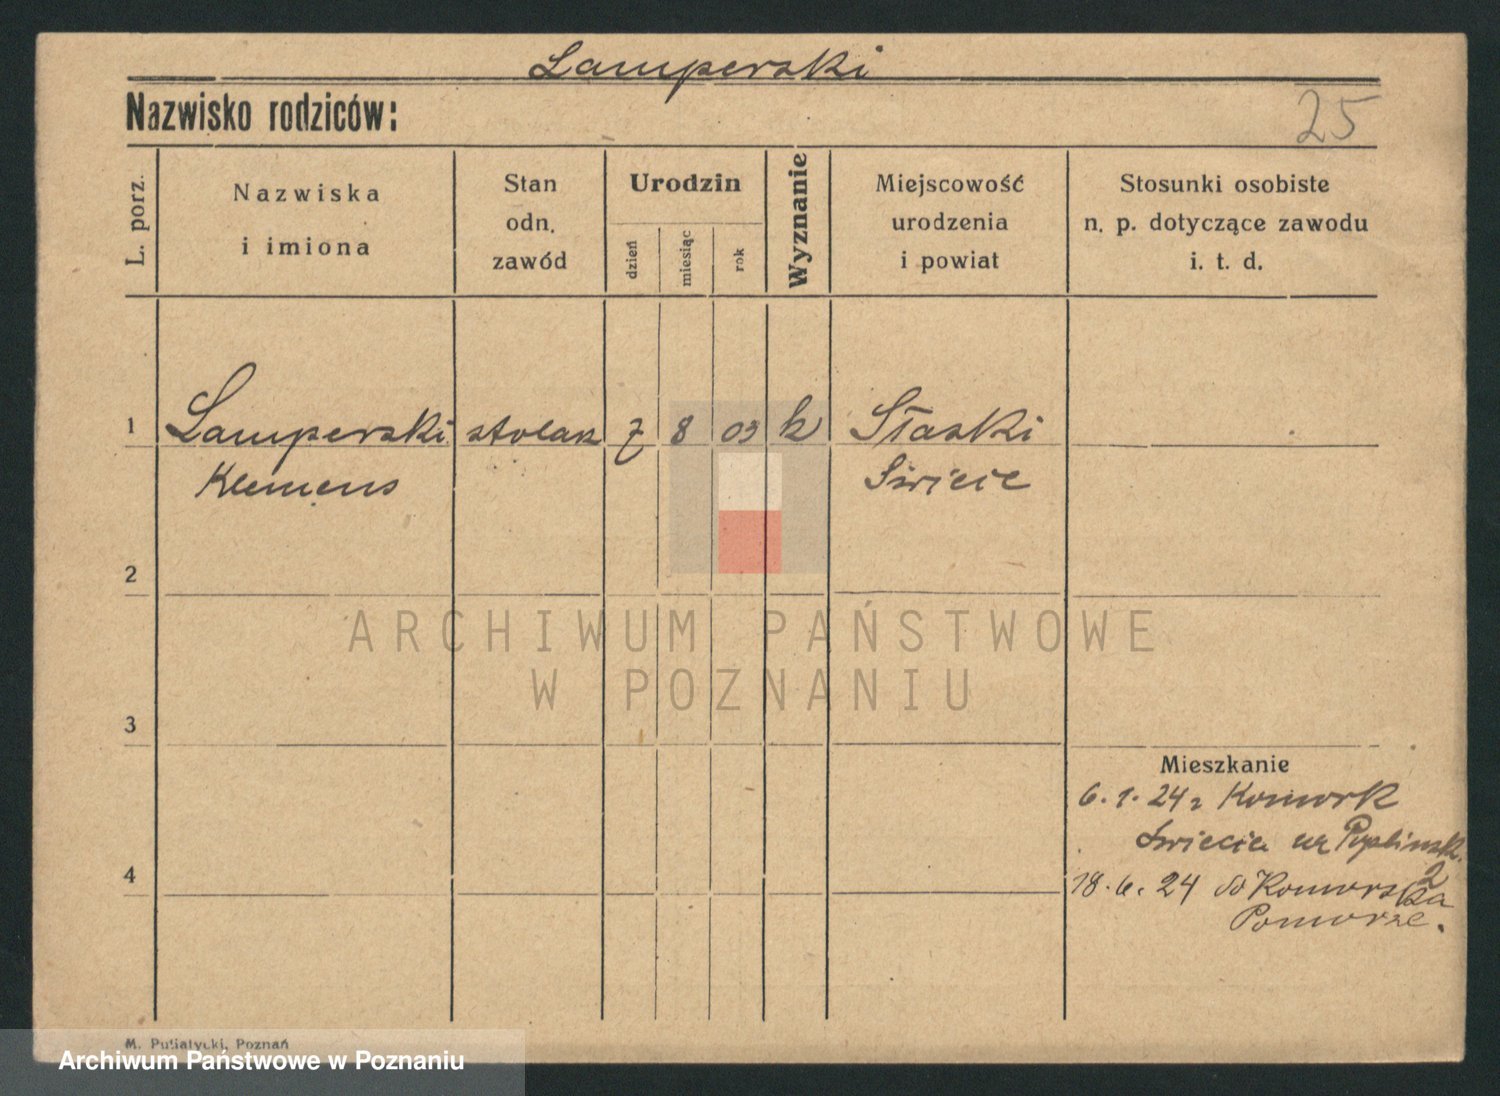 Lamperski
Nazwisko rodziców:
25
L. porz.
Nazwiska
i imiona
Stan
odn.
zawód
Urodzin
dzień
miesiąc
rok
Wyznanie
Miejscowość
urodzenia
i powiat
Stosunki osobiste
n. p. dotyczące zawodu
i. t. d.
1 Lamperski stolarz 7 8 03 k Słaski
Klemens Świecie
2
ARCHIWUM PAŃSTWOWE
W POZNANIU
3
Mieszkanie
6.1.24 z Komorsk
Świecie
4
18.6.24 do Komorska
Pomorze.
M. Putiatycki, Poznań
Archiwum Państwowe w Poznaniu